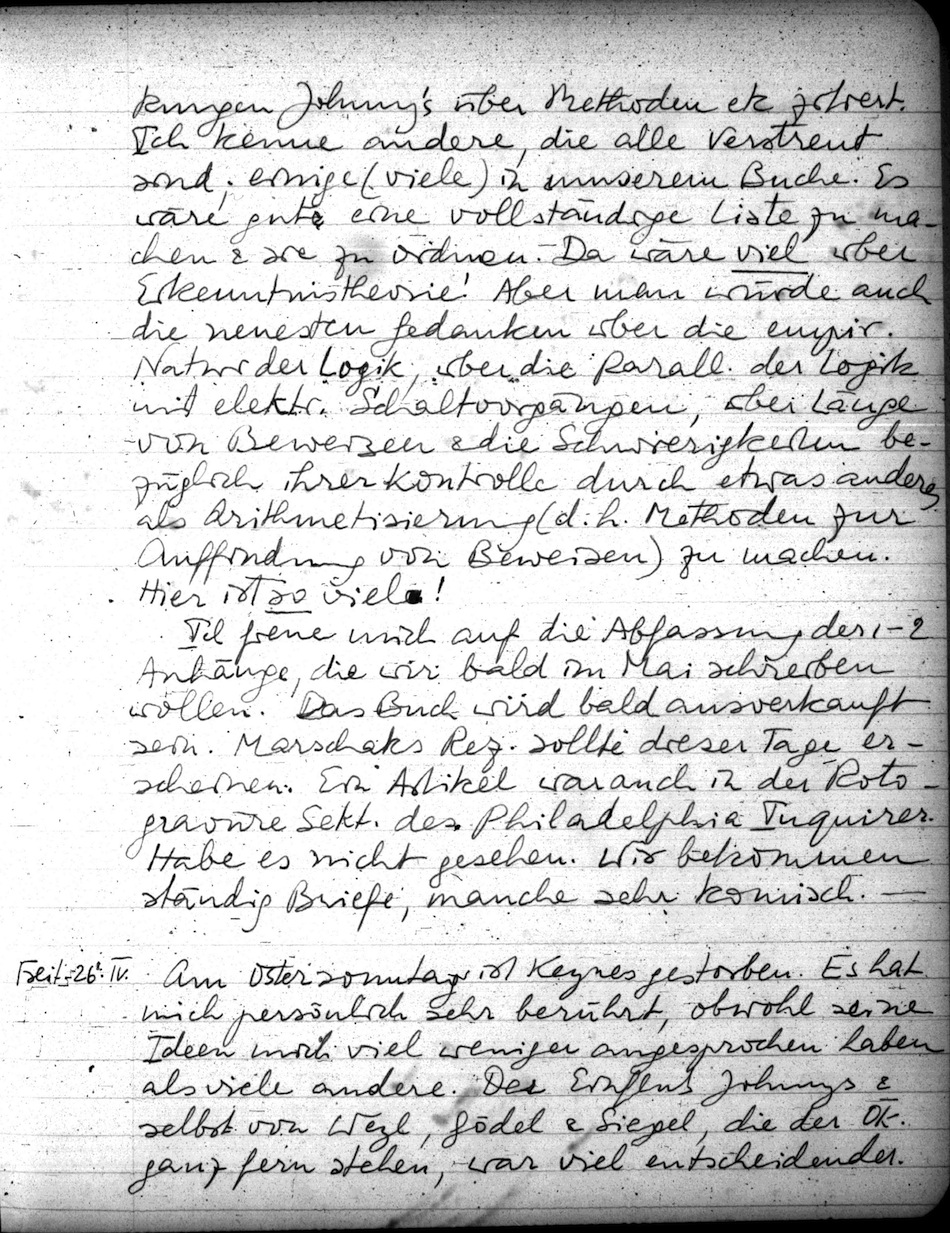 kungen Johnny's über Methoden etc zitiert.
Ich kenne andere, die alle verstreut
sind; einige (viele) in unserem Buche. Es
wäre gut, eine vollständige Liste zu ma-
chen & sie zu ordnen. Da wäre viel über
Erkenntnistheorie! Aber man würde auch
die neuesten Gedanken über die empir.
Natur der Logik, über die Parall. der Logik
mit elektr. Schaltvorgängen, über Länge
von Beweisen & die Schwierigkeiten be-
züglich ihrer Kontrolle durch etwas anderes
als Arithmetisierung (d.h. Methoden zur
Auffindung von Beweisen) zu machen.
Hier ist so viel!
Ich freue mich auf die Abfassung der 1-2
Anhänge, die wir bald im Mai schreiben
wollen. Das Buch wird bald ausverkauft
sein. Marschaks Rez. sollte dieser Tage er-
scheinen. Ein Artikel war auch in der Roto-
gravure Sekt. des Philadelphia Inquirer.
Habe es nicht gesehen. Wir bekommen
ständig Briefe, manche sehr komisch. —
Freit. 26. IV. Am Ostersonntag ist Keynes gestorben. Es hat
mich persönlich sehr berührt, obwohl seine
Ideen mich viel weniger angesprochen haben
als viele andere. Der Einfluss Johnnys &
selbst von Weyl, Gödel & Siegel, die der Ök.
ganz fern stehen, war viel entscheidender.